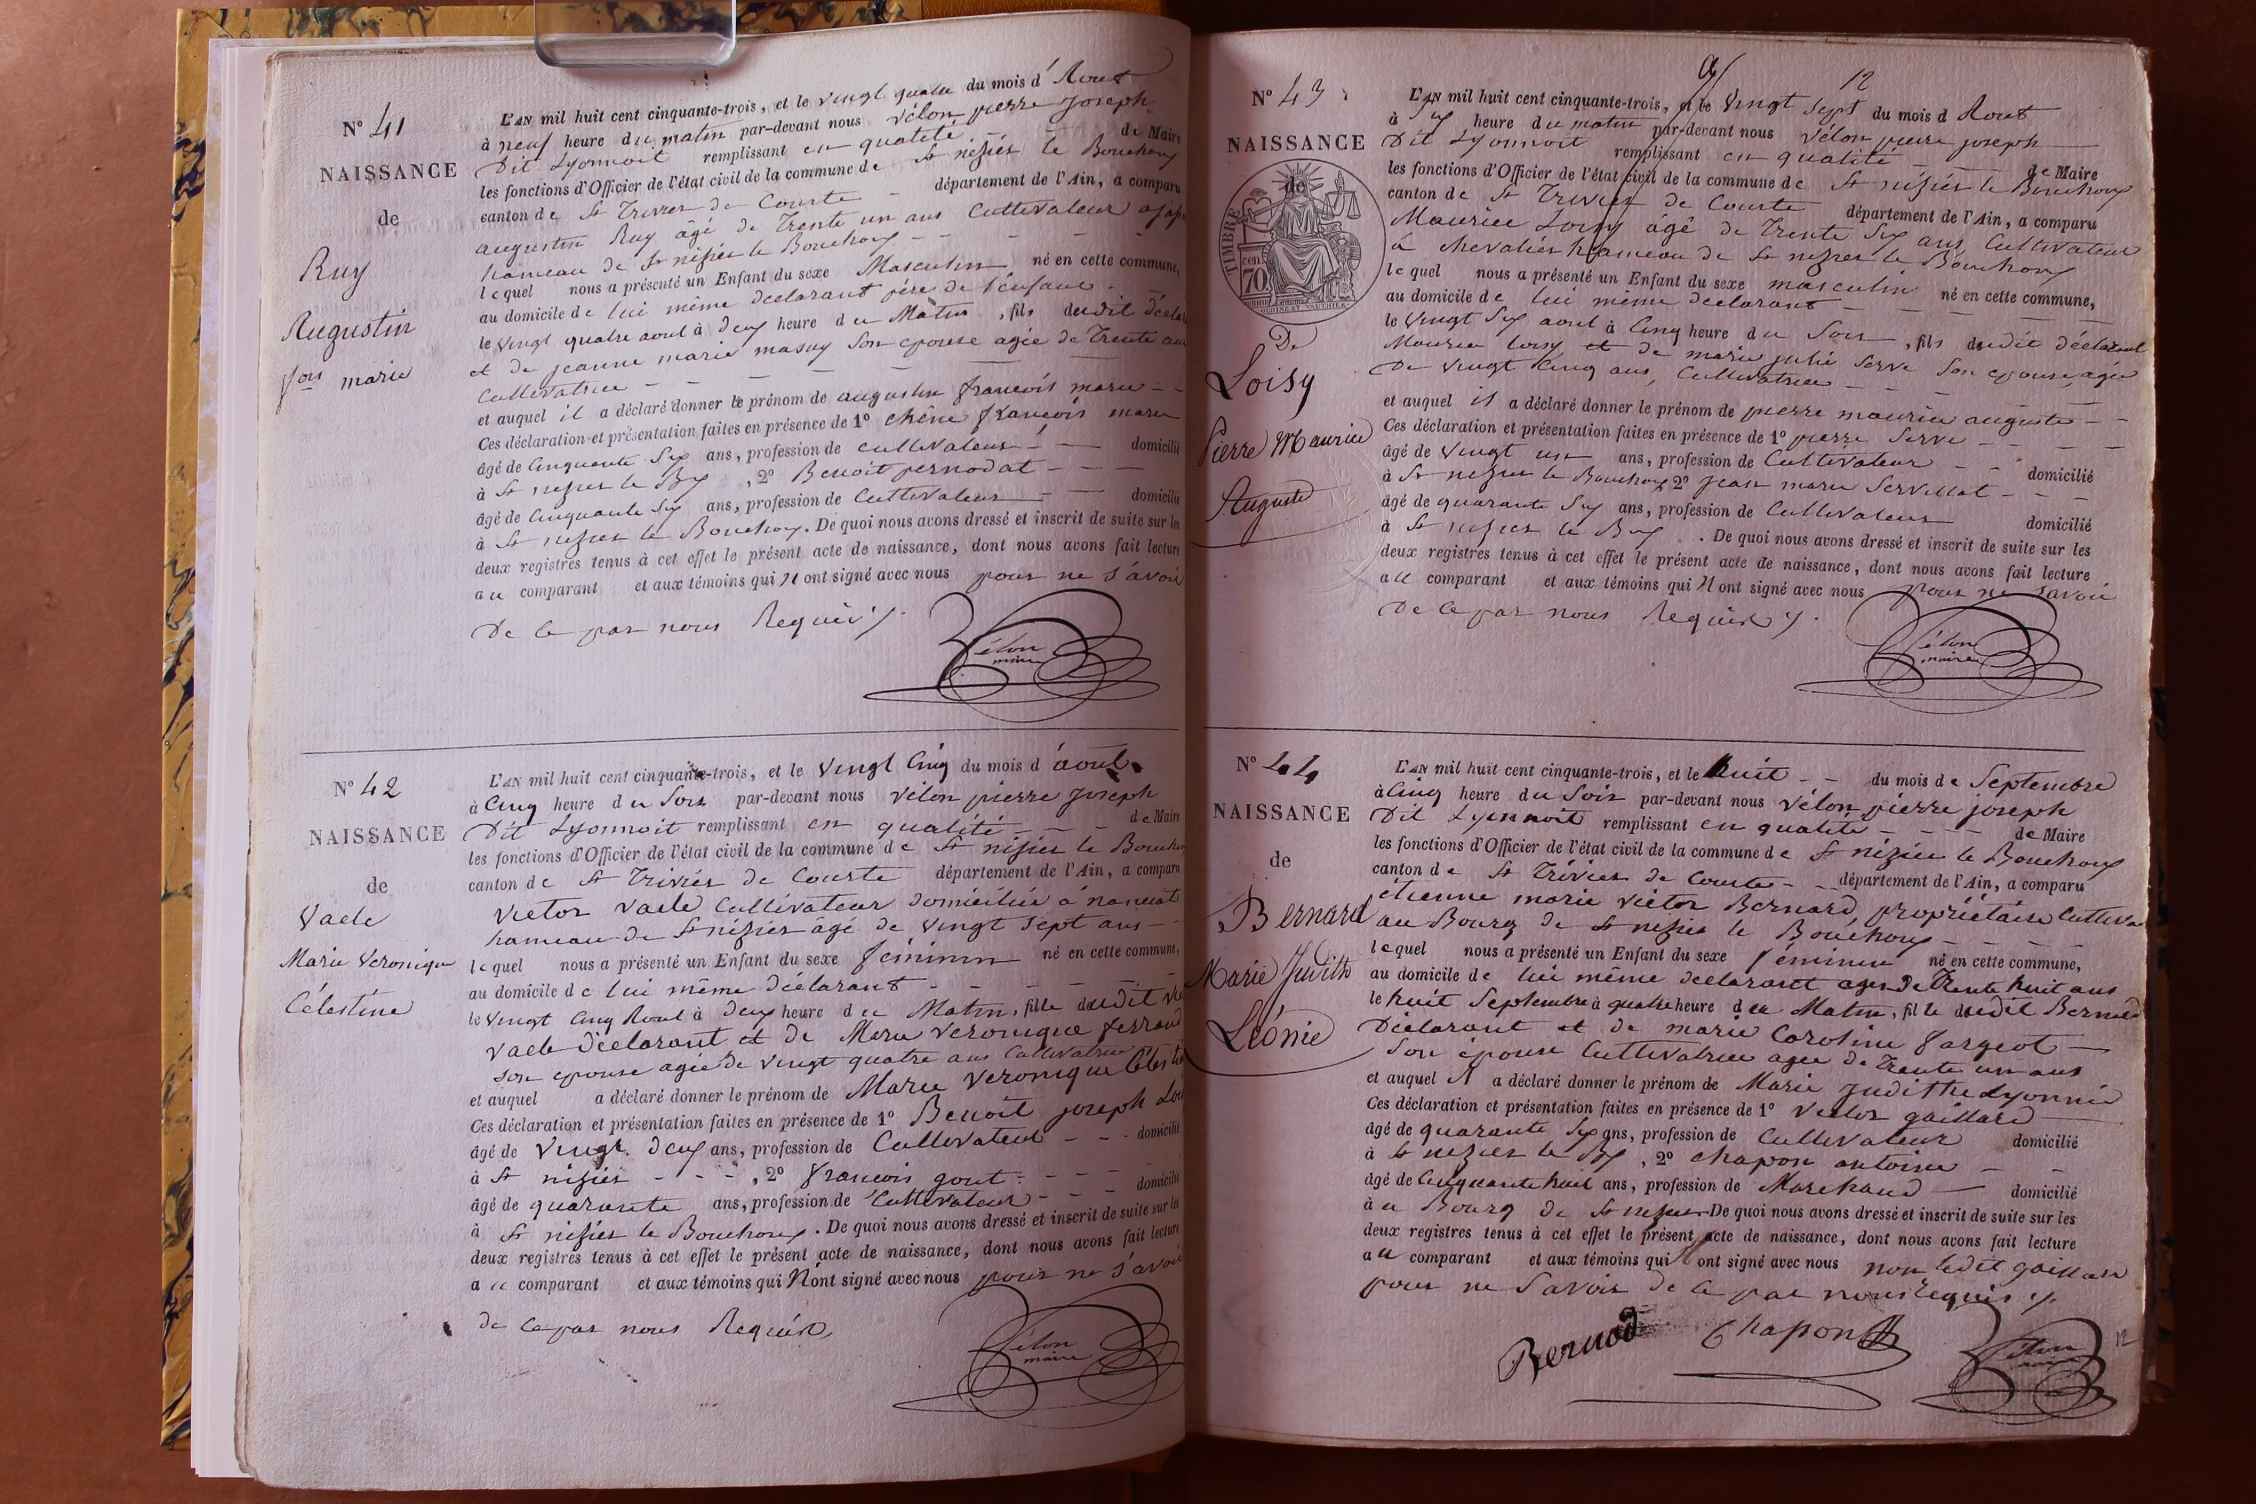 N° 41
NAISSANCE
de
Ruy
Augustin
fois marie
L'AN mil huit cent cinquante-trois, et le vingt quatre du mois d'Aout
à neuf heure du matin par-devant nous Vélon pierre joseph
Dit Lyonnoit remplissant en qualité de Maire
les fonctions d'Officier de l'état civil de la commune de St nizier le Bouchoux
canton de St Trivier de Courte - département de l'Ain, a comparu
augustin Ruy âgé de Trente un ans Cultivateur
hameau de St nizier le Bouchoux - - - -
lequel nous a présenté un Enfant du sexe Masculin né en cette commune,
au domicile de lui même declarant père de l'enfant -
le vingt quatre aout à deux heure du Matin, fils dudit
et de jeanne marie masuy son epouse agée de Trente
Cultivatrice - - - - -
et auquel il a déclaré donner le prénom de augustin francois marie - -
Ces déclaration et présentation faites en présence de 1° chêne francois marie
âgé de Cinquante Six ans, profession de cultivateur - - domicilié
à St nizier le Bx, 2° Benoit pernodat - - -
âgé de Cinquante Six ans, profession de Cultivateur - - domicilié
à St nizier le Bouchoux. De quoi nous avons dressé et inscrit de suite sur les
deux registres tenus à cet effet le présent acte de naissance, dont nous avons fait lecture
au comparant et aux témoins qui N ont signé avec nous pour ne savoir
De ce par nous Requis
Vélon
maire
N° 42
NAISSANCE
de
Vaele
Marie Veronique
Célestine
L'AN mil huit cent cinquante-trois, et le Vingt Cinq du mois d'aout
à Cinq heure du Soir par-devant nous Vélon pierre joseph
Dit Lyonnoit remplissant en qualité - - de Maire
les fonctions d'Officier de l'état civil de la commune de St nizier le
canton de St Trivier de Courte département de l'Ain, a comparu
Victor Vaele Cultivateur domicilié à
hameau de St nizier âgé de Vingt Sept ans -
lequel nous a présenté un Enfant du sexe féminin né en cette commune,
au domicile de lui même déclarant - - - -
le vingt Cinq Aout à deux heure du Matin, fille dudit
Vaele déclarant et de Marie Veronique ferrand
son epouse agée de Vingt quatre ans Cultivatrice
et auquel a déclaré donner le prénom de Marie Veronique
Ces déclaration et présentation faites en présence de 1° Benoit joseph
âgé de Vingt deux ans, profession de Cultivateur - - - domicilié
à St nizier - - - -, 2° francois gout - - -
âgé de quarante ans, profession de Cultivateur - - - domicilié
à St nizier le Bouchoux. De quoi nous avons dressé et inscrit de suite sur les
deux registres tenus à cet effet le présent acte de naissance, dont nous avons fait lecture
au comparant et aux témoins qui N'ont signé avec nous pour ne savoir
de ce par nous Requis
Vélon
maire
12
N° 43
NAISSANCE
de
TIMBRE
cen
70
De
Loisy
Pierre Maurice
Auguste
L'AN mil huit cent cinquante-trois, et le Vingt Sept du mois d Aout
à Six heure du matin par-devant nous Vélon pierre joseph
Dit Lyonnoit remplissant en qualité - - de Maire
les fonctions d'Officier de l'état civil de la commune de St nizier le Bouchoux
canton de St Trivier de Courte département de l'Ain, a comparu
Maurice Loisy âgé de Trente Six ans Cultivateur
à chevalier hameau de St nizier le Bouchoux
lequel nous a présenté un Enfant du sexe masculin né en cette commune,
au domicile de lui même déclarant - - - -
le Vingt Six aout à Cinq heure du Soir, fils dudit déclarant
Maurice Loisy et de marie julie Serve Son epouse, agée
De Vingt Cinq ans, Cultivatrice - - -
et auquel il a déclaré donner le prénom de pierre maurice auguste - -
Ces déclaration et présentation faites en présence de 1° pierre Serve - - -
âgé de Vingt un ans, profession de Cultivateur - - domicilié
à St nizier le Bouchoux 2° jean marie Servillat - - -
âgé de quarante Six ans, profession de Cultivateur domicilié
à St nizier le Bx. De quoi nous avons dressé et inscrit de suite sur les
deux registres tenus à cet effet le présent acte de naissance, dont nous avons fait lecture
au comparant et aux témoins qui N ont signé avec nous pour ne savoir
De ce par nous Requis
Vélon
maire
N° 44
NAISSANCE
de
Bernard
Marie Judith
Léonie
L'AN mil huit cent cinquante-trois, et le huit - - du mois de Septembre
à Cinq heure du Soir par-devant nous Vélon pierre joseph
Dit Lyonnoit remplissant en qualité - - - de Maire
les fonctions d'Officier de l'état civil de la commune de St nizier le Bouchoux
canton de St Trivier de Courte - - département de l'Ain, a comparu
étienne marie Victor Bernard, propriétaire
au Bourg de St nizier le Bouchoux - - - -
lequel nous a présenté un Enfant du sexe féminin né en cette commune,
au domicile de lui même déclarant ager de Trente huit ans
le huit Septembre à quatre heure du Matin, fille dudit Bernard
Déclarant et de marie Caroline fargeot -
Son épouse Cultivatrice agee de Trente un ans
et auquel il a déclaré donner le prénom de Marie Judithe Lyonnie
Ces déclaration et présentation faites en présence de 1° Victor gaillard
âgé de quarante Six ans, profession de Cultivateur domicilié
à St nizier le Bx, 2° chapon antoine - -
âgé de Cinquante huit ans, profession de Marchand - domicilié
à u Bourg de St nizier De quoi nous avons dressé et inscrit de suite sur les
deux registres tenus à cet effet le présent acte de naissance, dont nous avons fait lecture
au comparant et aux témoins qui ont signé avec nous non ledit gaillard
pour ne Savoir de ce par nous Requis
Bernard
Chapon
Vélon
maire
12